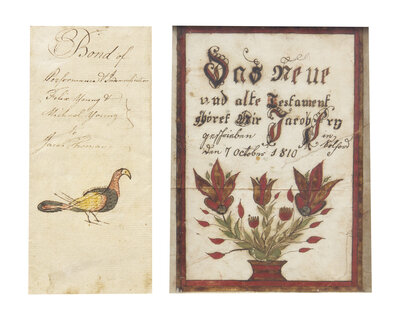 Bond of
Performance
Felix Young &
Michael Young
to
Jacob
Das Neue
und alte Testament
höret Mir Jacob
geschrieben
den 7 October 1810